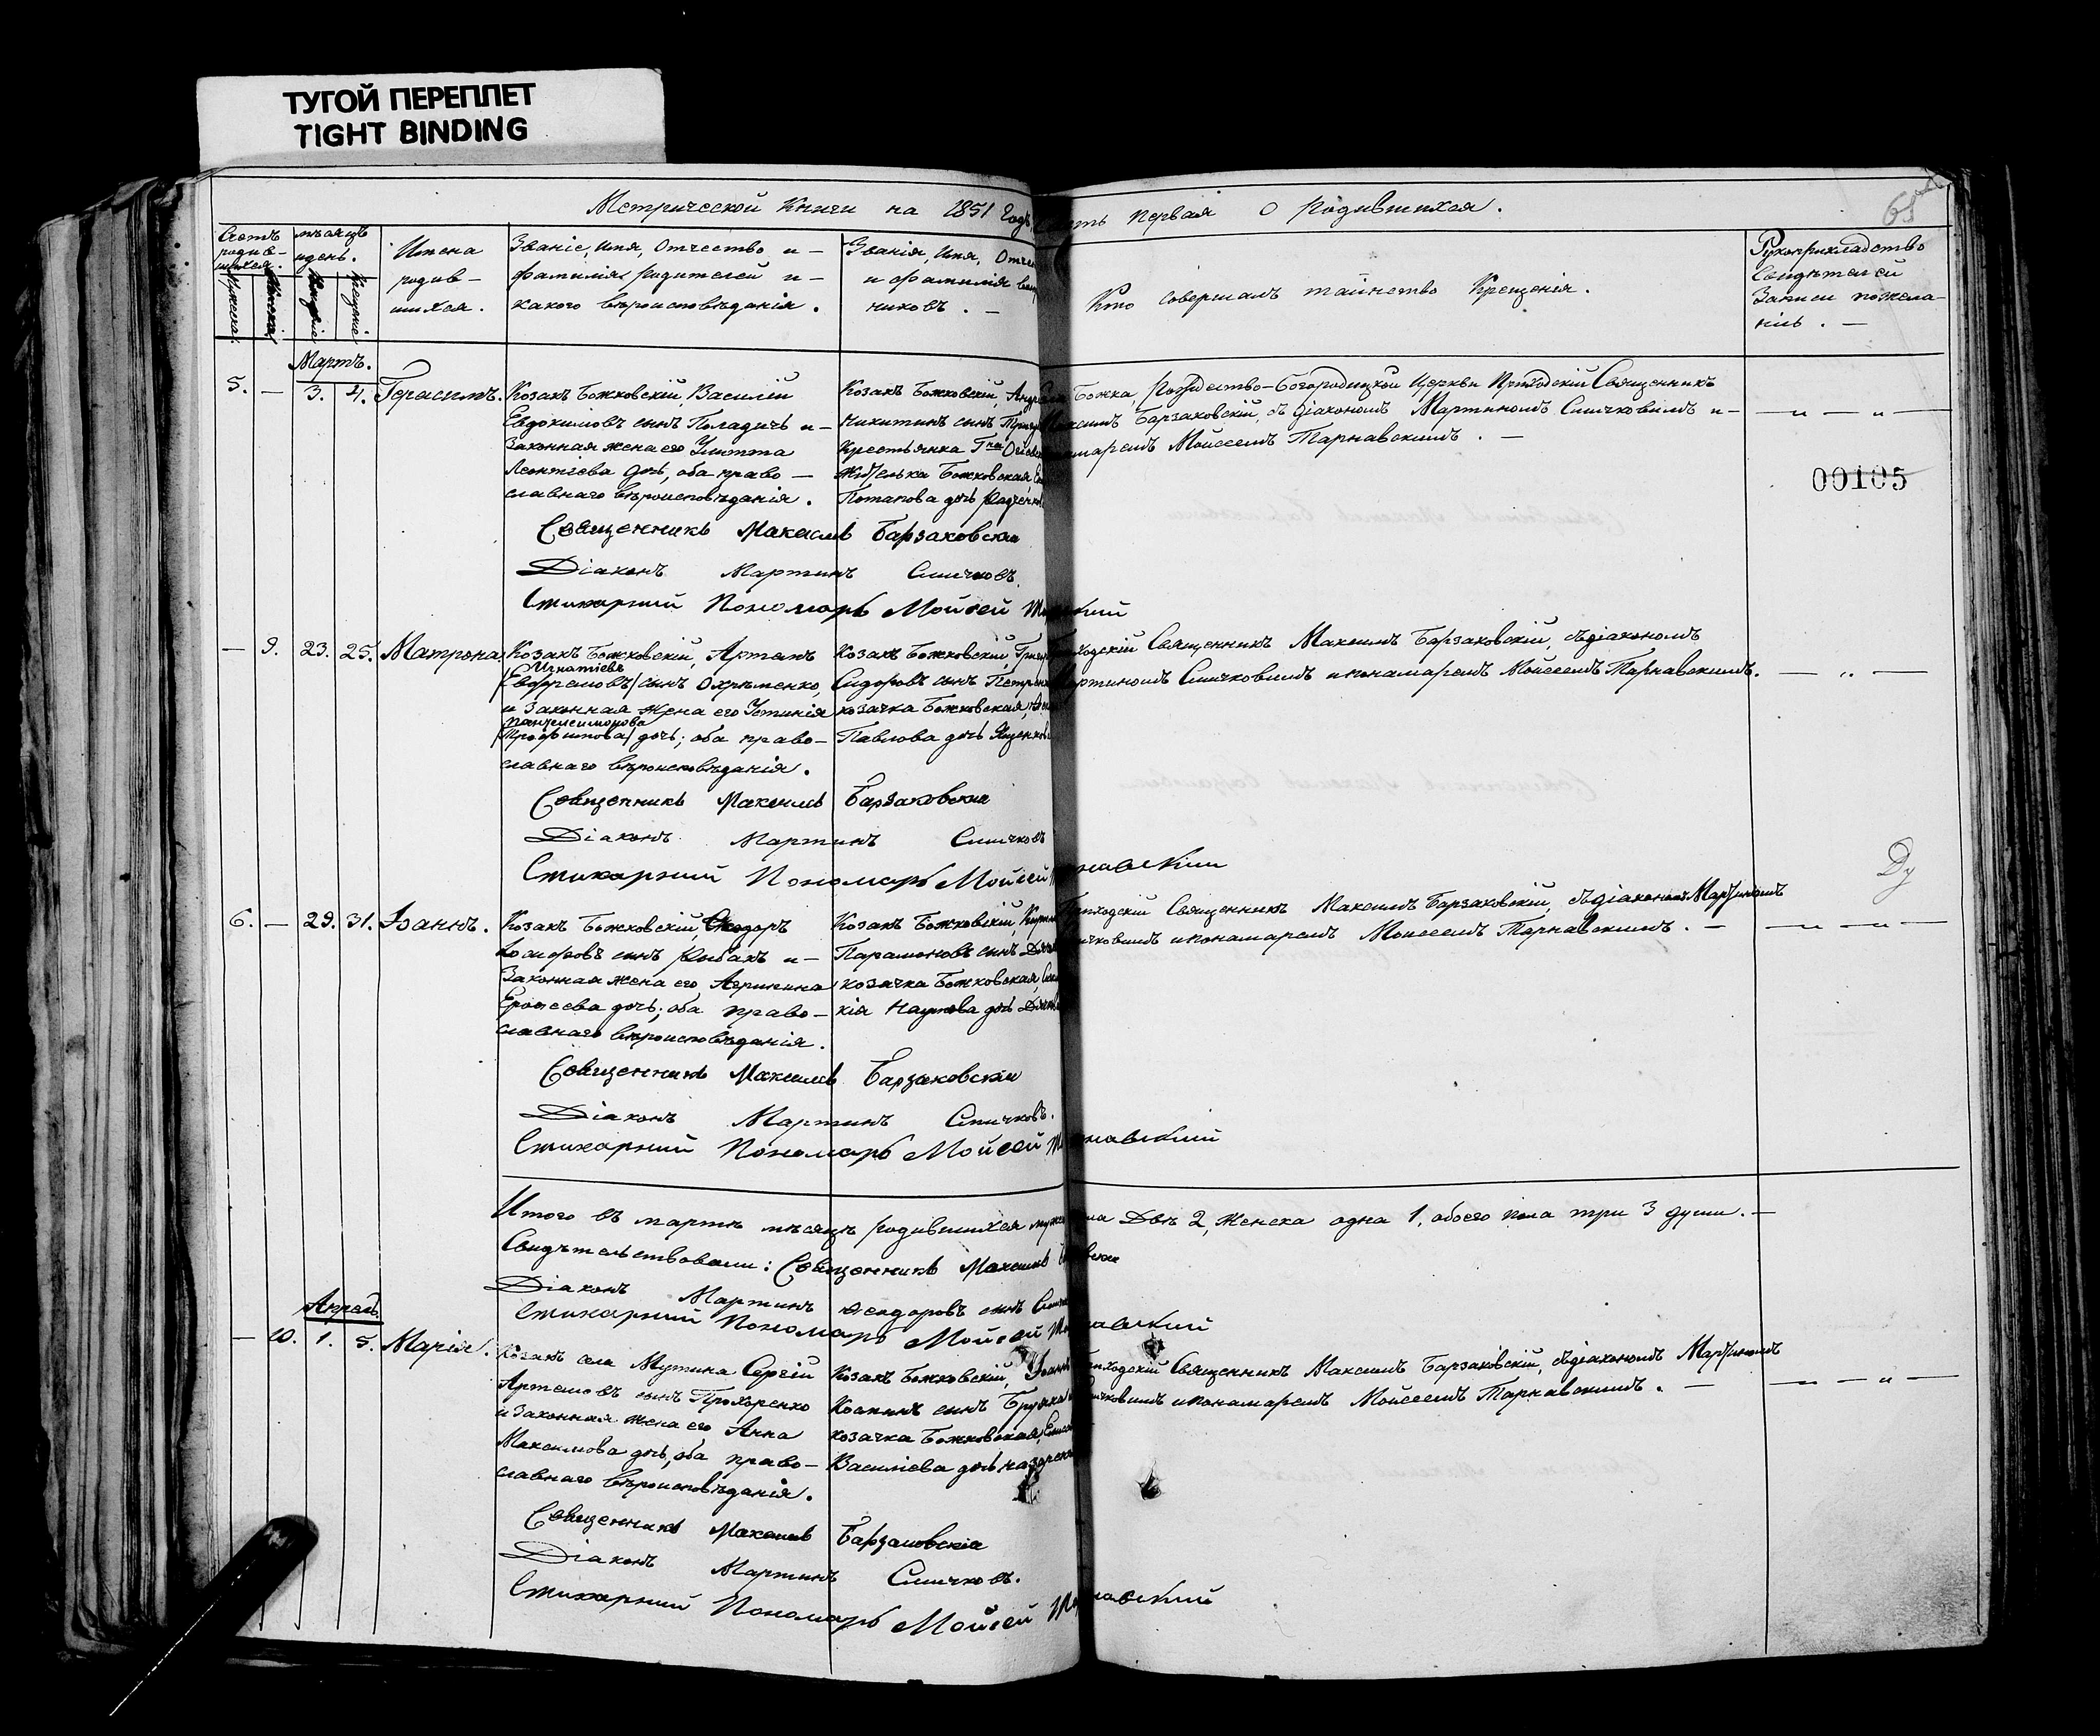 ТУГОЙ ПЕРЕПЛЕТ
TIGHT BINDING
65
Метрической Книги на 1851 годъ Часть первая о родившихся.
Счетъ родив-шихся.
мѣсяцъ и день.
Имена
родив-
шихся.
Званіе, Имя, Отчество и
фамилія родителей и
какого вѣроисповѣданія.
Званія, Имя, Отчес
и фамилія
никовъ. —
Кто совершалъ таинство Крещенія.
Рукоприкладство
Свидѣтелей
Записи по жела-
нію. —
Мартъ.
5. — 3. 4. Герасимъ.
Козакъ Божковскій, Василій
Евдокимовъ сынъ Поладичь и —
Законная жена его Улитта
Леонтіева дочь, оба право —
славнаго вѣроисповѣданія.
Козакъ Божковскій, Андрей
Никитинъ сынъ
Крестьянка Г
Жителька Божковская,
Потапова дочь Радченко
Божка, Рождество-Богородицкой Церкви Приходскій Священникъ
Максимъ Барзаковскій, съ діакономъ Мартиномъ Симчковымъ и —
пономаремъ Мойсеемъ Тарнавскимъ. —
00105
Священникъ Максимъ Барзаковскій
Діаконъ Мартинъ Симчковъ.
Стихарный Пономарь Мойсей
— 9. 23. 25. Матрона.
Козакъ Божковскій, Артемъ
Игнатіевъ
/Евфремовъ/ сынъ Охрѣменко,
и Законная жена его Устинія
Пантелеимонова
/Трофимова/ дочь; оба право —
славнаго вѣроисповѣданія.
Козакъ Божковскій,
Сидоровъ сынъ
козачка Божковская,
Павлова дочь Яценкова
Приходскій Священникъ Максимъ Барзаковскій, съ діакономъ
Мартиномъ Симчковымъ и пономаремъ Мойсеемъ Тарнавскимъ.
Священникъ Максимъ Барзаковскій
Діаконъ Мартинъ Симчковъ
Стихарный Пономарь Мойсей Тарнавскій
Ду
6. — 29. 31. Іоаннъ.
Козакъ Божковскій, Ѳеодоръ
Іосифовъ сынъ Рыбакъ и —
Законная жена его Агрипина
Ерофеева дочь; оба право —
славнаго вѣроисповѣданія.
Козакъ Божковскій,
Парамоновъ сынъ
козачка Божковская,
кія Наумова дочь
Приходскій Священникъ Максимъ Барзаковскій, съ діакономъ Мартиномъ
Симчковымъ и пономаремъ Мойсеемъ Тарнавскимъ. —
Священникъ Максимъ Барзаковскій
Діаконъ Мартинъ Симчковъ.
Стихарный Пономарь Мойсей Тарнавскій
Итого въ мартѣ мѣсяцѣ родившихся мужеска Двѣ 2, женска одна 1, обоего пола три 3 души. —
Свидѣтельствовали: Священникъ Максимъ Барзаковскій
Діаконъ Мартинъ Ѳеодоровъ сынъ
Стихарный Пономарь Мойсей Тарнавскій
Апрель
— 10. 1. 5. Марія.
Козакъ села Мутина Сергій
Артемовъ сынъ Прохоренко
и Законная жена его Анна
Максимова дочь, оба право —
славнаго вѣроисповѣданія.
Козакъ Божковскій, Іоаннъ
сынъ
козачка Божковская,
Василіева дочь
Приходскій Священникъ Максимъ Барзаковскій, съ діакономъ Мартиномъ
Симчковымъ и пономаремъ Мойсеемъ Тарнавскимъ. —
Священникъ Максимъ Барзаковскій
Діаконъ Мартинъ Симчковъ.
Стихарный Пономарь Мойсей Тарнавскій